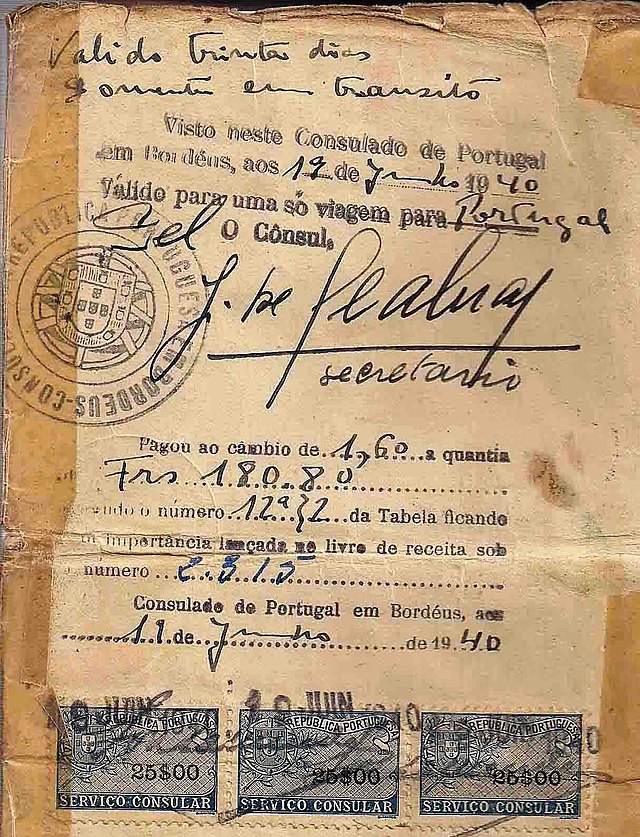 Valido trinta dias
Somente em transito
Visto neste Consulado de Portugal
em Bordéus, aos 19 de Junho 1940
Válido para uma só viagem para Portugal
Pel O Cônsul,
J. de
secretario
REPUBLICA PORTUGUESA EM BORDEUS-CONSU
Pagou ao câmbio de 1,60 a quantia
Frs 180.80
o número da Tabela ficando
importância lançada no livro de receita sob
numero 2315
Consulado de Portugal em Bordéus, aos
19 de Junho de 1940
19 JUN 19 JUN 1940 40
REPUBLICA PORTUGUESA REPUBLICA PORTUGUESA REPUBLICA PORTUGUESA
25$00 25$00 25$00
SERVIÇO CONSULAR SERVIÇO CONSULAR SERVIÇO CONSULAR